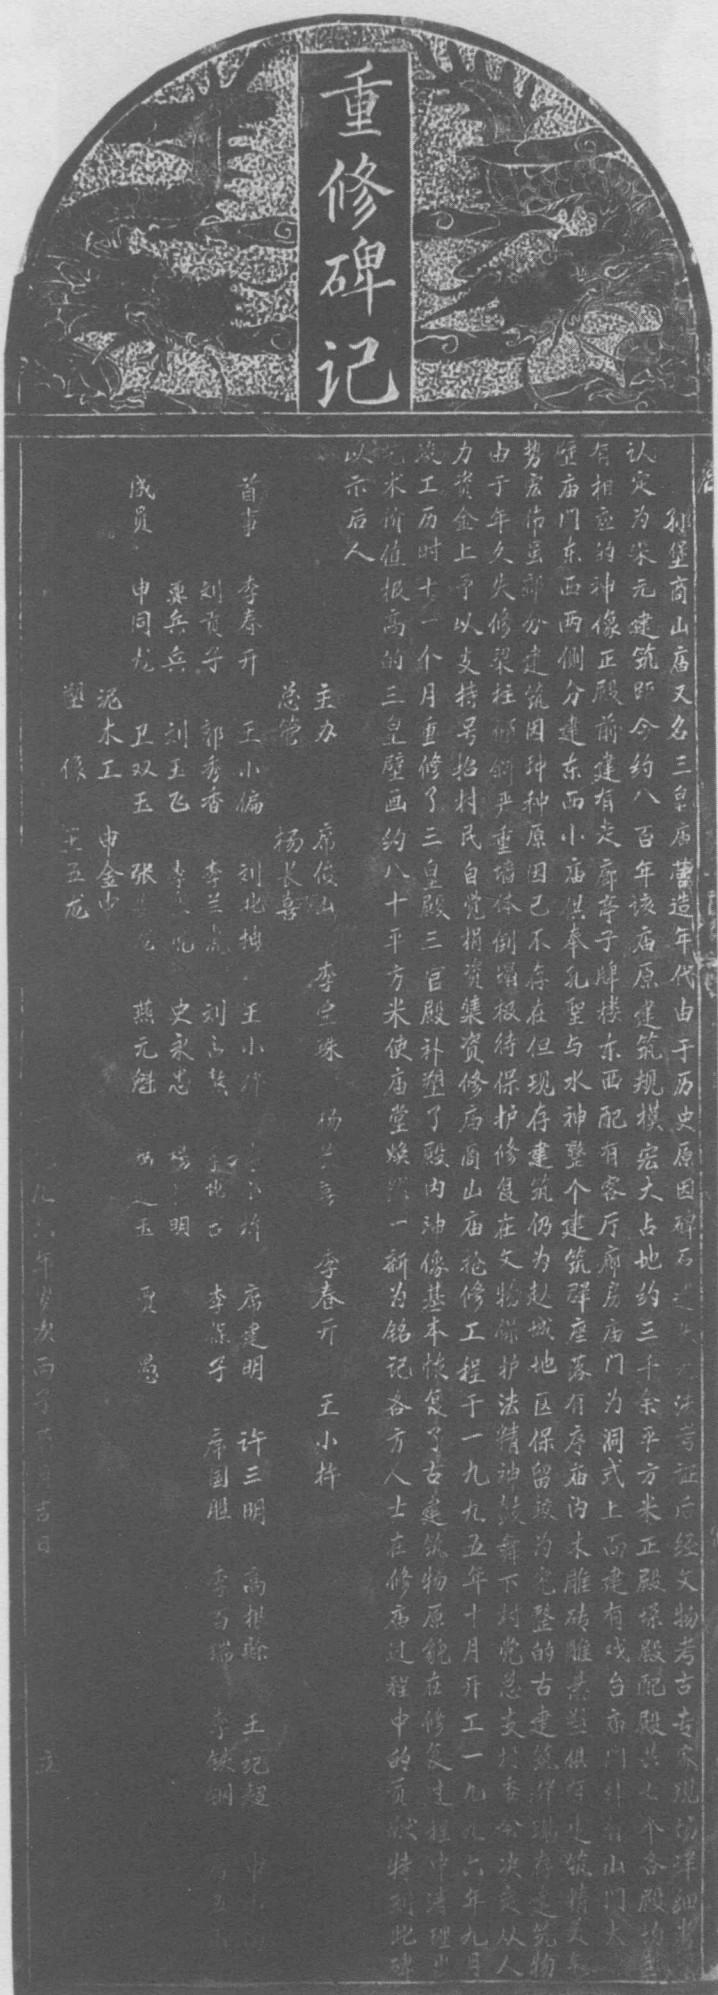 重修碑记
孙堡商山庙又名三皇庙营造年代由于历史原因碑石无法考证后经文物考古专家现场详细
认定为宋元建筑距今约八百年该庙原建筑规模宏大占地约三千余平方米正殿垛殿配殿共七个各殿均
有相应的神像正殿前建有走廊亭子牌楼东西配有客厅廊房庙门为洞式上面建有戏台庙门外有山门大
壁庙门东西两侧分建东西小庙供奉孔圣与水神整个建筑群座落有序庙内木雕砖雕俱有建筑精美
势宏伟虽部分建筑因种种原因已不存在但现存建筑仍为赵城地区保留较为完整的古建筑群现存建筑物
由于年久失修梁柱倾斜严重墙体倒塌极待保护修复在文物保护法精神鼓舞下村党总支村委会决定从人
力资金上予以支持号招村民自觉捐资集资修庙商山庙抢修工程于一九九五年十月开工一九九六年九月
竣工历时十一个月重修了三皇殿三官殿补塑了殿内神像基本恢复了古建筑物原貌在修复过程中清理出
艺术价值报高的三皇壁画约八十平方米使庙堂焕然一新为铭记各方人士在修庙过程中的贡献特刻此碑
以示后人
主办 席俊山 李宝珠 杨长喜 李春开 王小群
总管 杨长喜
首事 李春开 王小偏 刘北抽 王小 席建明 许三明 高根 王记超
刘贡子 郭秀香 李兰虎 刘 李保子 席国胜 李百瑞 李铁钢
贾兵兵 刘玉飞 史永忠 杨 明
成员 申同龙 卫双玉 张 燕元魁 玉 贾
泥木工 申金中
塑像 王五龙
九六年岁次丙子 吉日 立